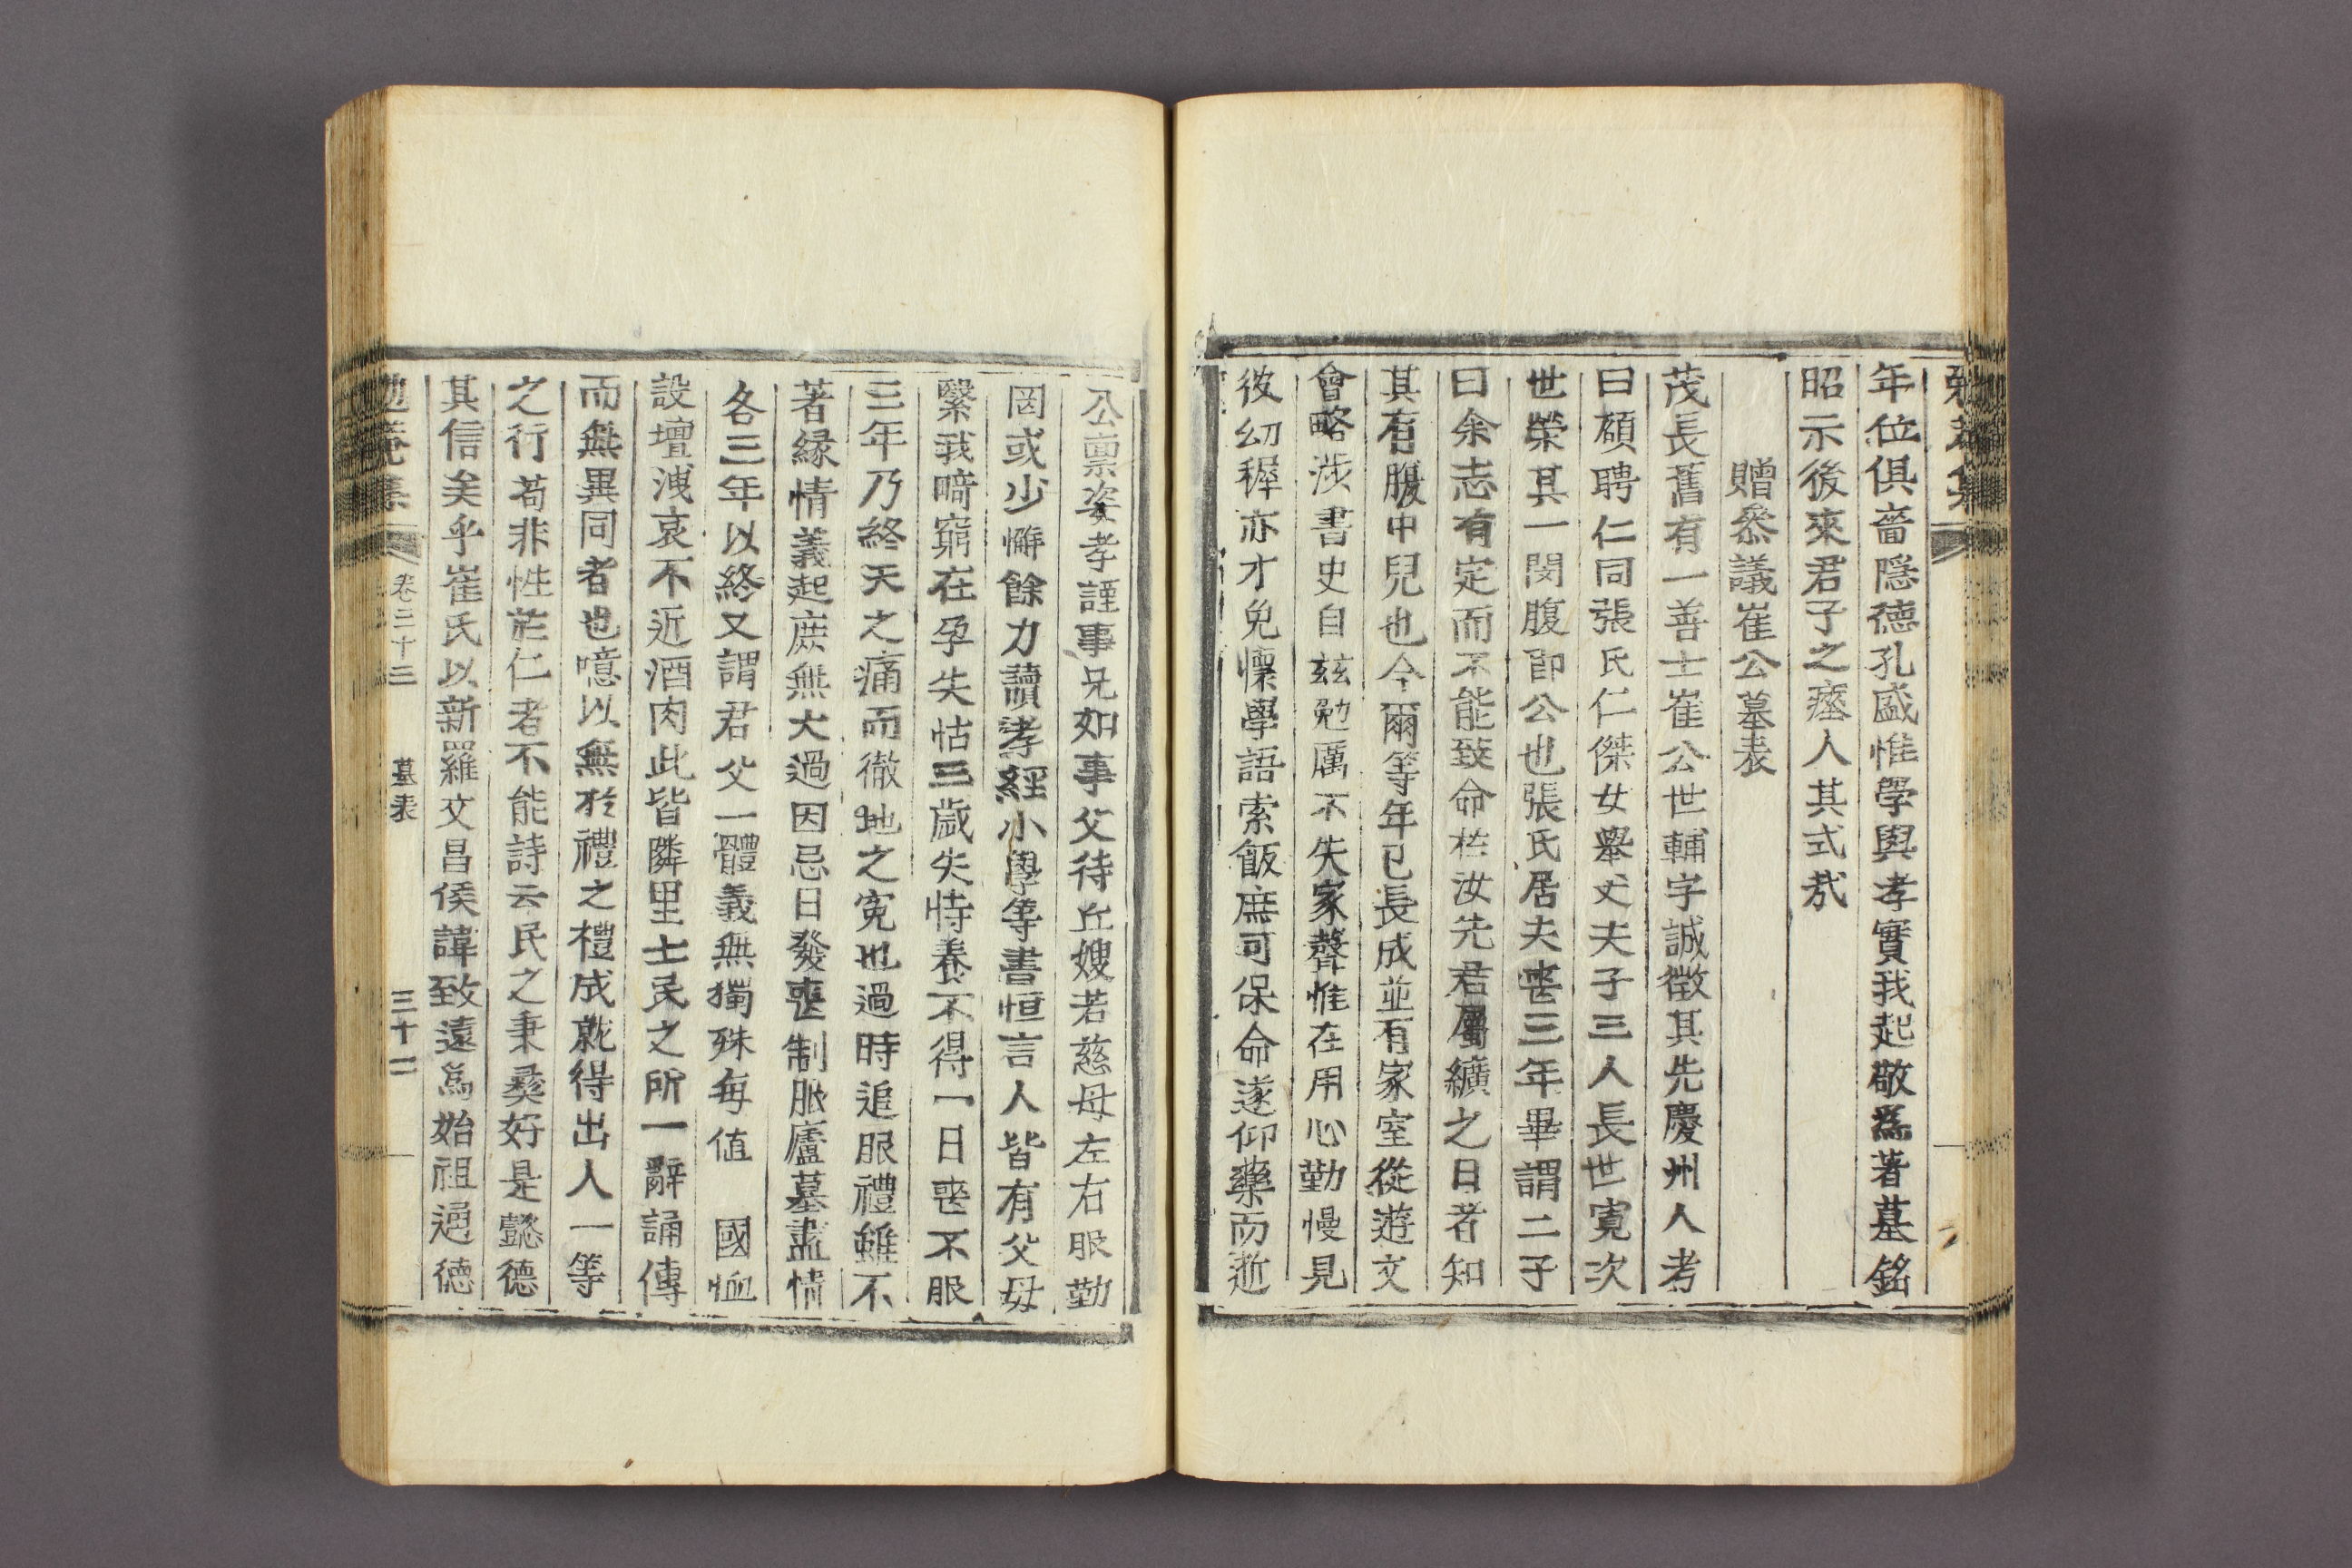 勉菴集
年位俱嗇隱德孔盛惟學與孝實我起敬爲著墓銘
昭示後來君子之瘞人其式㢤
贈叅議崔公墓表
茂長舊有一善士崔公世輔字誠徵其先慶州人考
曰碩聘仁同張氏仁傑女擧丈夫子三人長世寬次
世榮其一閔腹卽公也張氏居夫喪三年畢謂二子
曰余志有定而不能致命於汝先君屬纊之日者知
其有腹中兒也今爾等年已長成並有家室從遊文
會略涉書史自玆勉厲不失家聲惟在用心勤慢見
彼幼穉亦才免懷學語索飯庶可保命遂仰藥而逝
公禀姿孝謹事兄如事父待丘嫂若慈母左右服勤
罔或少懈餘力讀孝經小學等書恒言人皆有父母
繄我畸窮在孕失怙三歲失恃養不得一日喪不服
三年乃終天之痛而徹地之寃也過時追服禮雖不
著緣情義起庶無大過因忌日發喪制服廬墓盡情
各三年以終又謂君父一體義無獨殊每值 國恤
設壇洩哀不近酒肉此皆隣里士民之所一辭誦傳
而無異同者也噫以無於禮之禮成就得出人一等
之行苟非性於仁者不能詩云民之秉彛好是懿德
其信矣乎崔氏以新羅文昌侯諱致遠爲始祖逈德
勉菴集 卷三十三 墓表 三十二